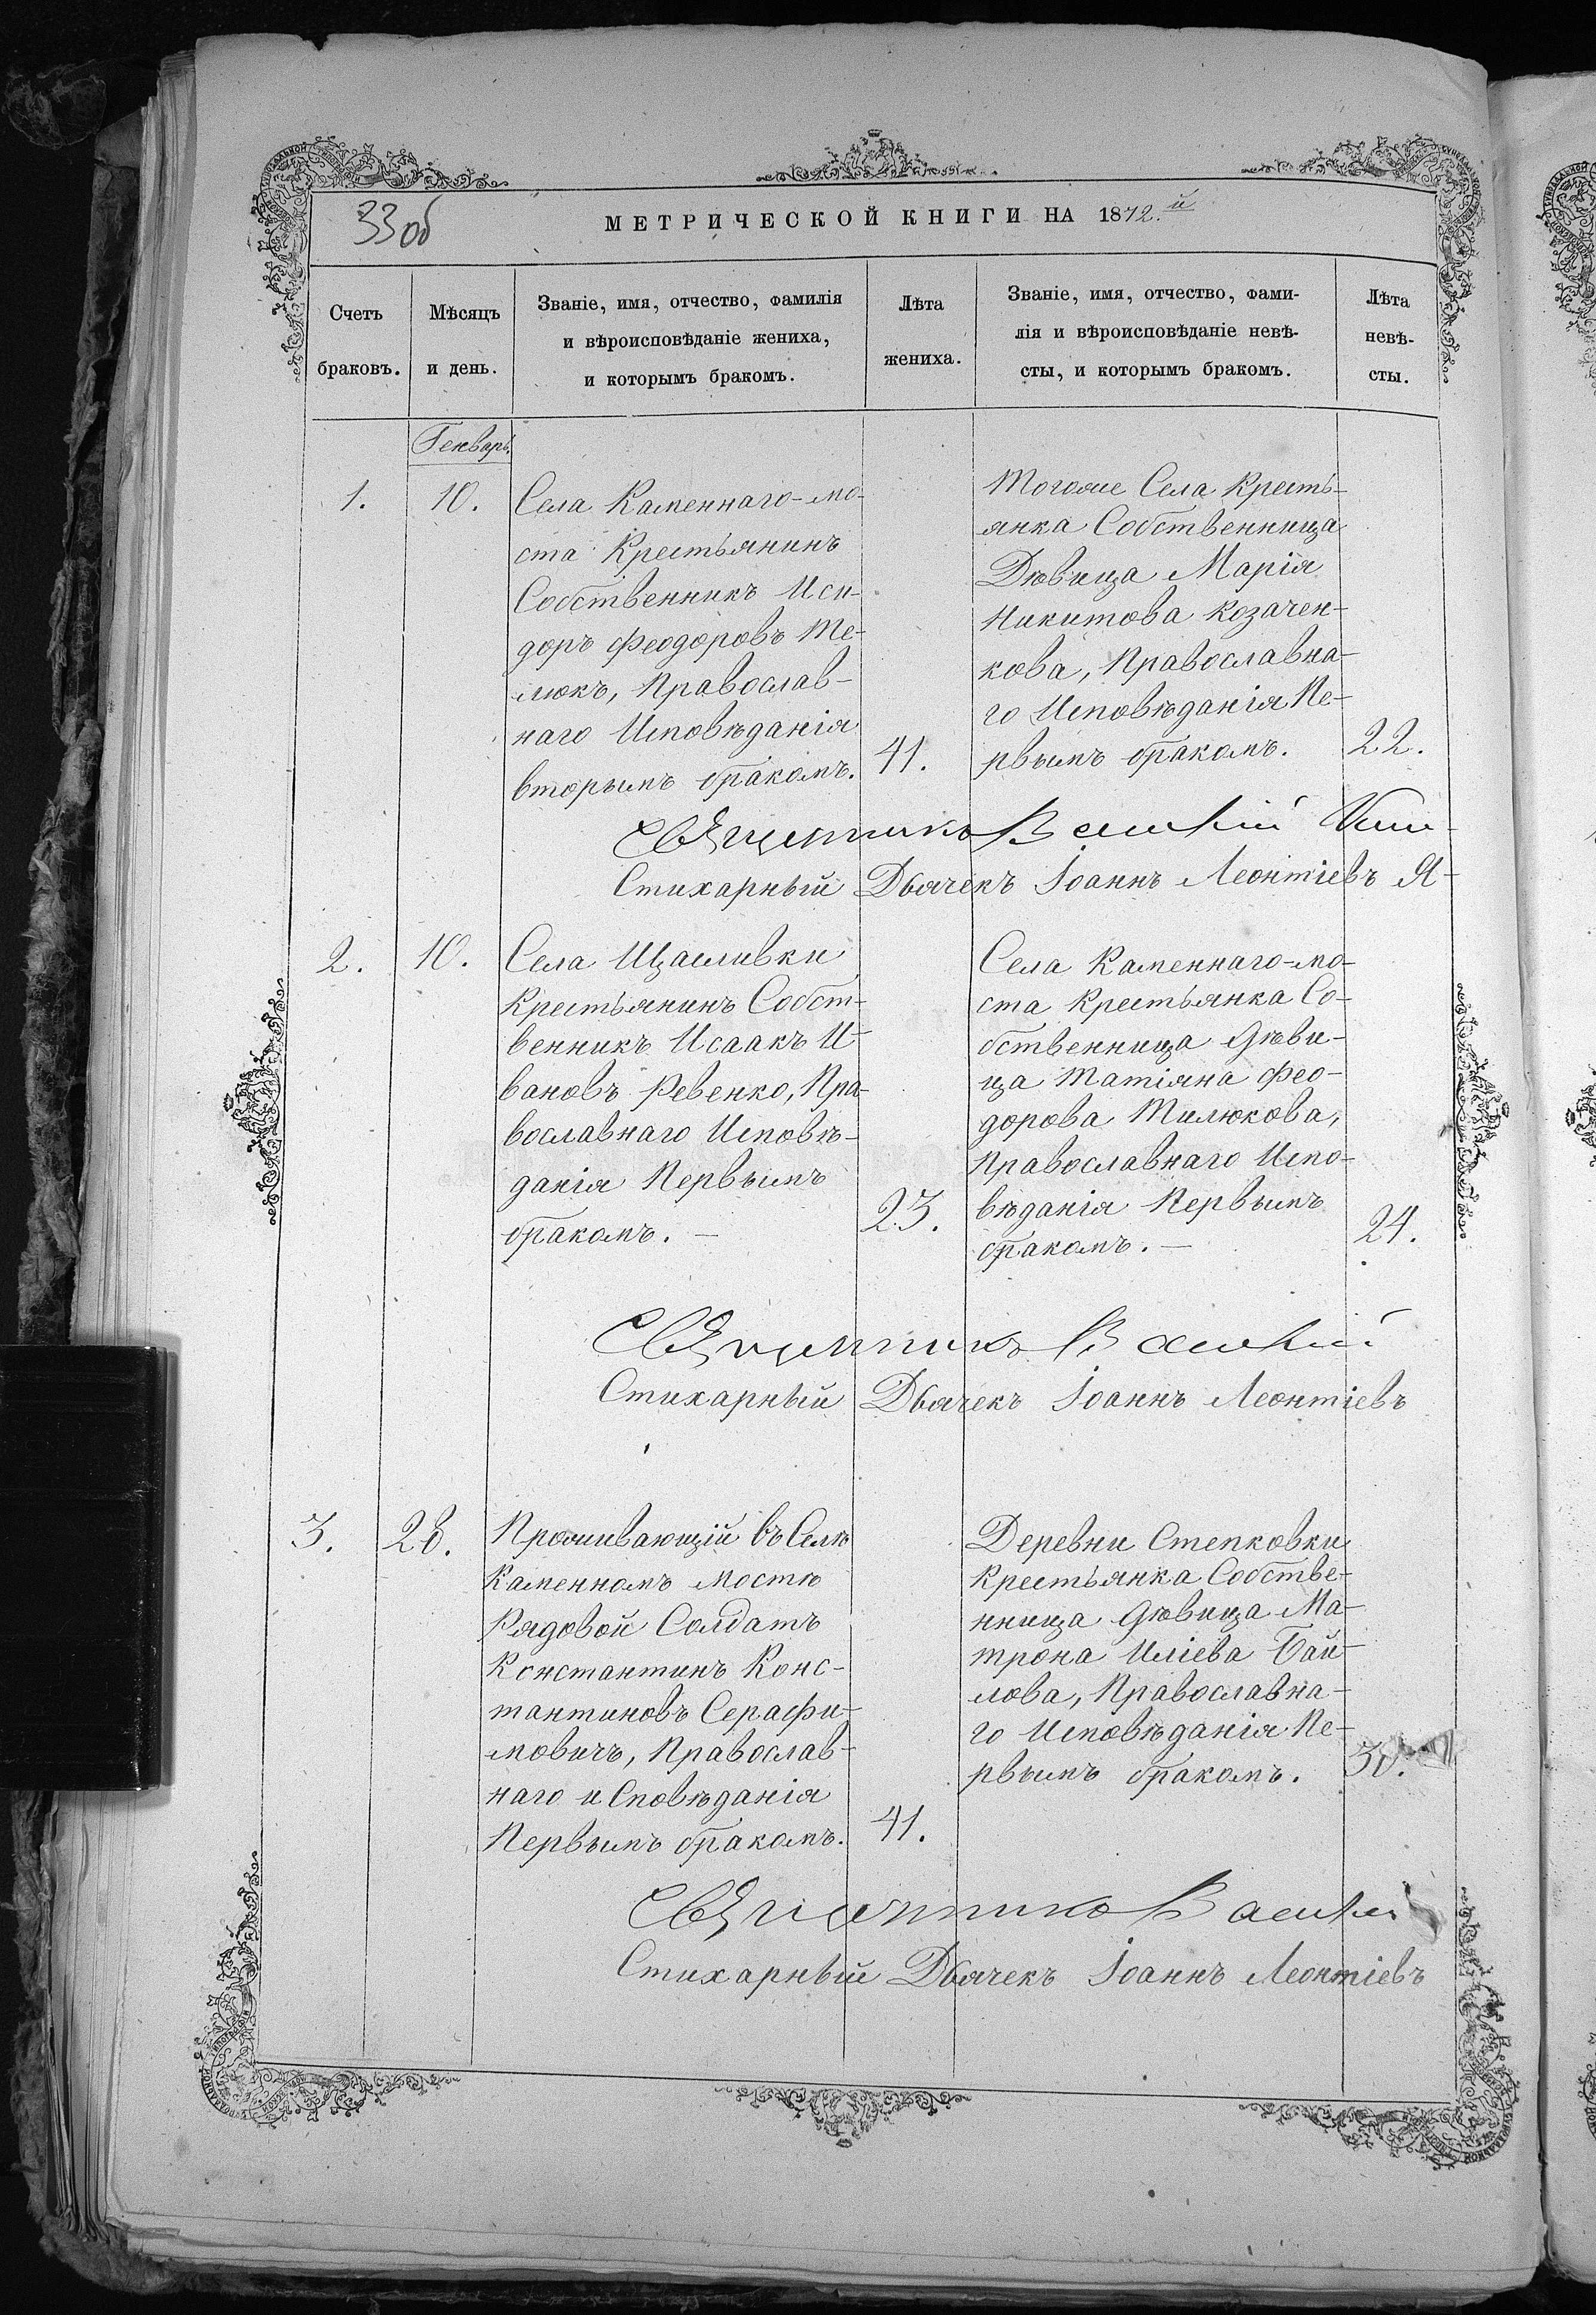 33об
МЕТРИЧЕСКОЙ КНИГИ НА 1872.й
Счетъ
браковъ.
Мѣсяцъ
и день.
Званіе, имя, отчество, фамилія
и вѣроисповѣданіе жениха,
и которымъ бракомъ.
Лѣта
жениха.
Званіе, имя, отчество, фами-
лія и вѣроисповѣданіе невѣ-
сты, и которымъ бракомъ.
Лѣта
невѣ-
сты.
Генварь.
1.
10.
Села Каменнаго-мо-
ста Крестьянинъ
Собственникъ Иси-
доръ Феодоровъ Те-
люкъ, Православ-
наго Исповѣданія
вторымъ бракомъ.
41.
Тогоже Села Кресть-
янка Собственница
Дѣвица Марія
Никитова Козачен-
кова, Православна-
го Исповѣданія Пе-
рвымъ бракомъ.
22.
Священникъ Василій
Стихарный Дьячекъ Іоаннъ Леонтіевъ Я-
2.
10.
Села Щасливки
Крестьянинъ Собст-
венникъ Исаакъ И-
вановъ Ревенко, Пра-
вославнаго Исповѣ-
данія Первымъ
бракомъ. —
23.
Села Каменнаго-мо-
ста Крестьянка Со-
бственница Дѣви-
ца Татіяна Фео-
дорова Тилюкова,
Православнаго Испо-
вѣданія Первымъ
бракомъ. —
24.
Священникъ Василій
Стихарный Дьячекъ Іоаннъ Леонтіевъ
3.
28.
Проживающій въ Селѣ
Каменномъ мостѣ
Рядовой Солдатъ
Константинъ Конс-
тантиновъ Серафи-
мовичъ, Православ-
наго исповѣданія
Первымъ бракомъ.
41.
Деревни Степковки
Крестьянка Собстве-
нница Дѣвица Ма-
трона Иліева Бай-
лова, Православна-
го Исповѣданія Пе-
рвымъ бракомъ.
30.
Священникъ Василій
Стихарный Дьячекъ Іоаннъ Леонтіевъ